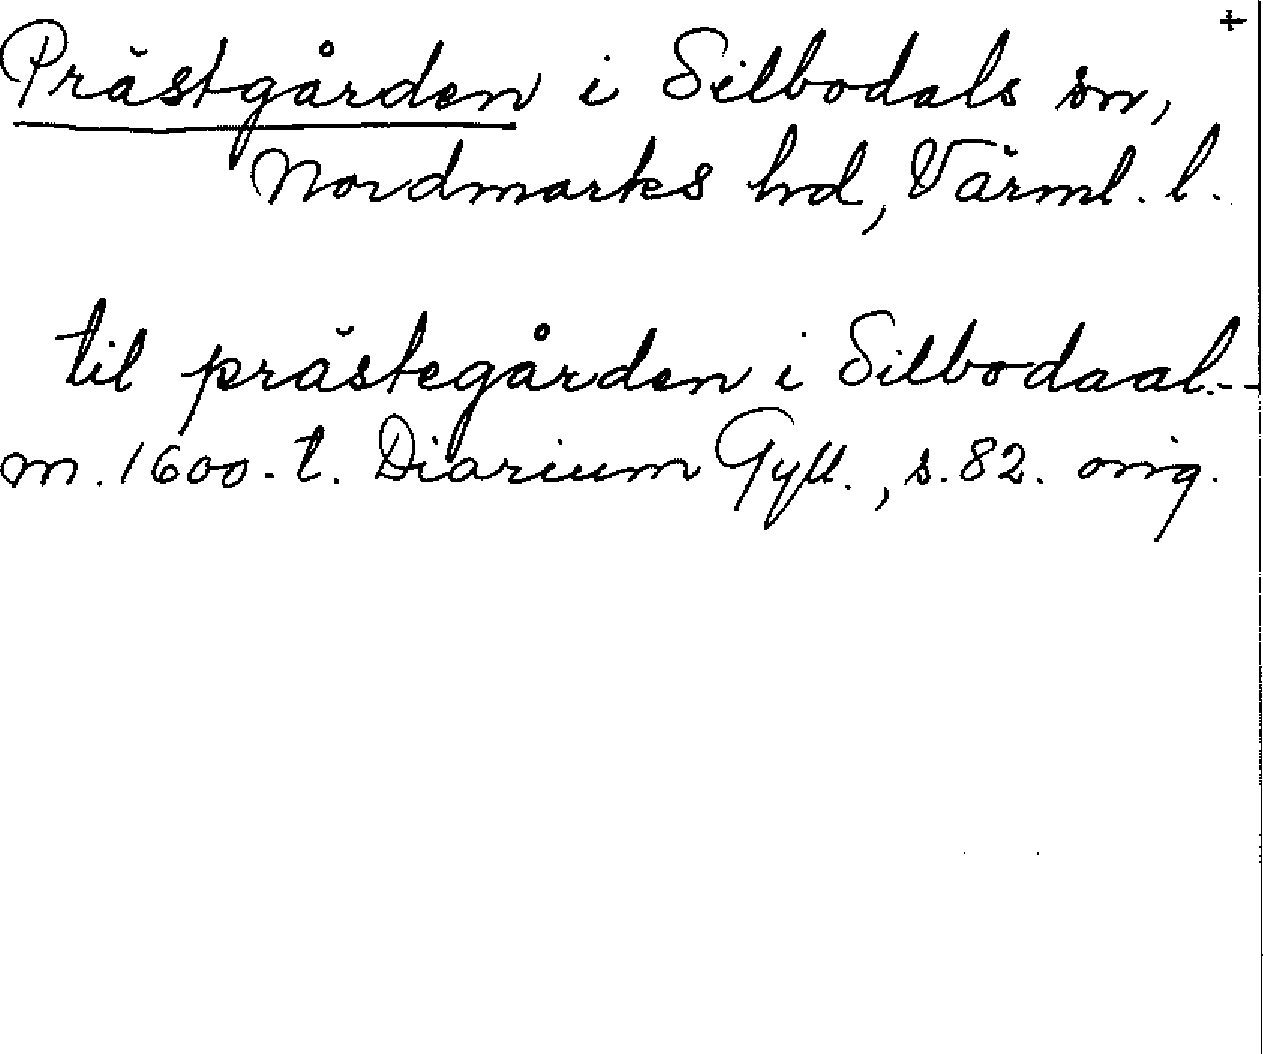 +
Prästgården i Silbodals sn,
Nordmarks hd, Värml. l.
til prästegården i Silbodaal --
m. 1600-t. Diarium Gyll., s. 82. orig.